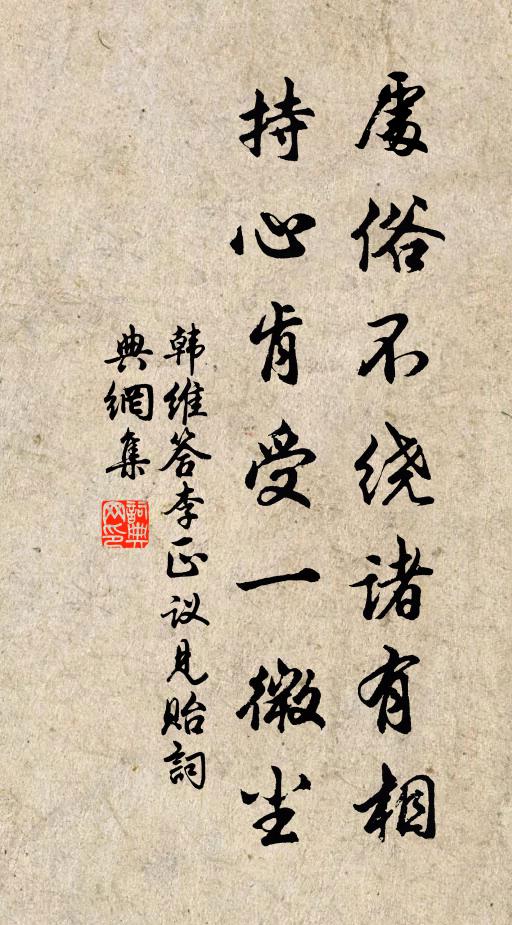 處俗不绕诸有相
持心肯受一微尘
韩维答李正议见贻詞
典網集
詞典
网印